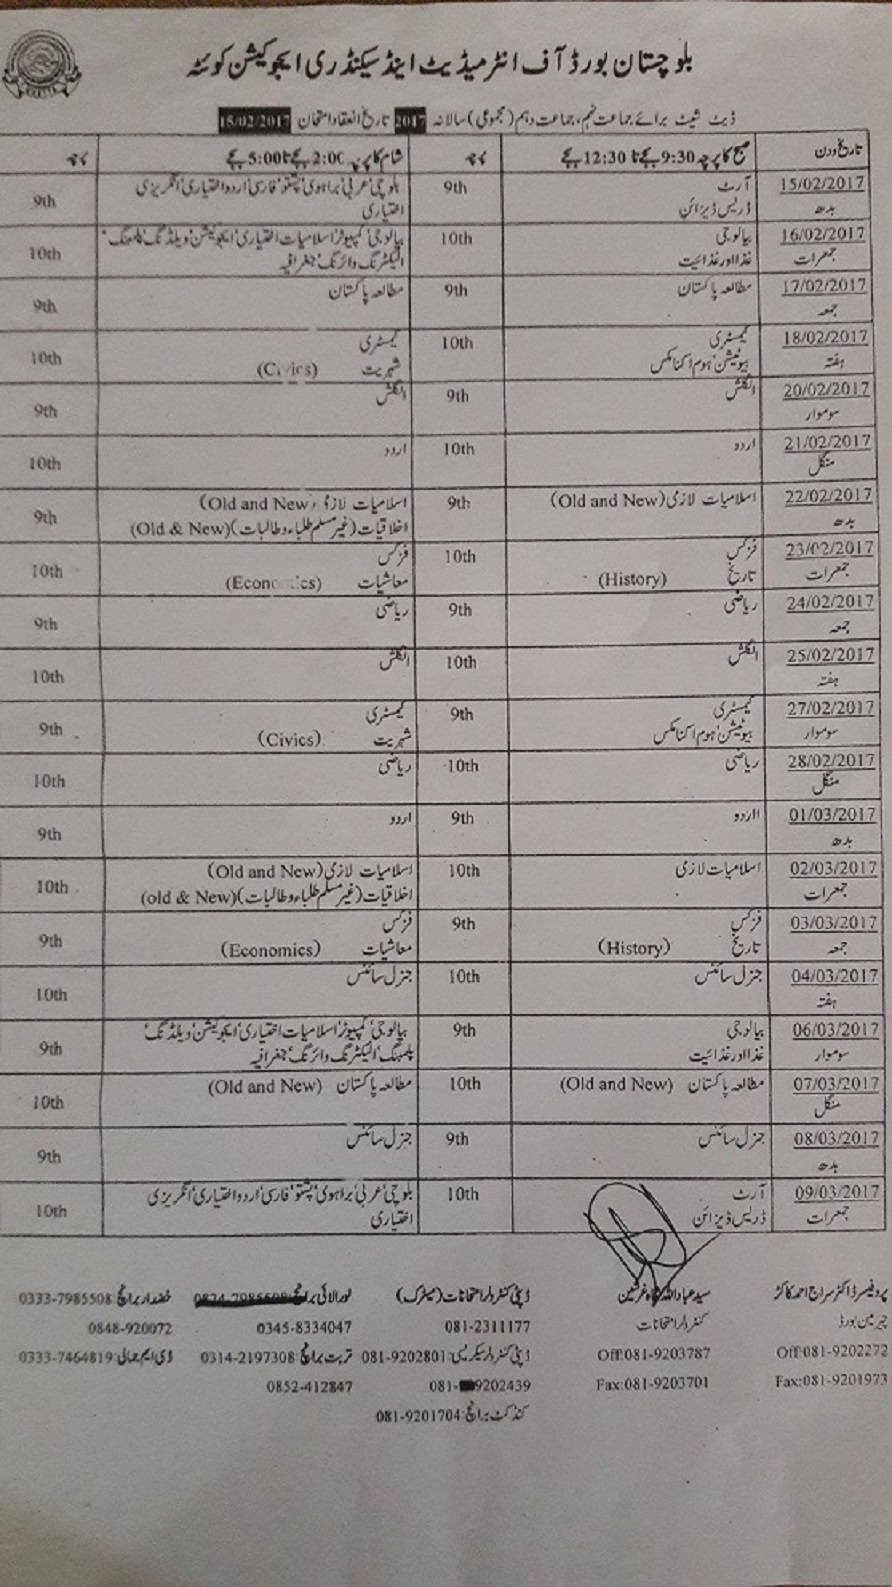 بلوچستان بورڈ آف انٹرمیڈیٹ اینڈ سیکنڈری ایجوکیشن کوئٹہ
ڈیٹ شیٹ برائے جماعت نہم، جماعت دہم (مجموعی) سالانہ 2017 تاریخ انعقاد امتحان 15/02/2017
تاریخ و دن صبح کا پرچہ 9:30 بجے تا 12:30 بجے شام کا پرچہ 2:00 بجے تا 5:00 بجے
15/02/2017 آرٹ 9th بلوچی عربی براہوی پشتو فارسی اردو اختیاری انگریزی 9th
بدھ ڈریس ڈیزائن اختیاری
16/02/2017 بیالوجی 10th بیالوجی کمپیوٹر اسلامیات اختیاری ایجوکیشن ویلڈنگ پلمبنگ 10th
جمعرات غذا اور غذائیت الیکٹرک وائرنگ جغرافیہ
17/02/2017 مطالعہ پاکستان 9th مطالعہ پاکستان 9th
جمعہ
18/02/2017 کیمسٹری 10th کیمسٹری 10th
ہفتہ بیوٹیشن ہوم اکنامکس شہریت (Civics)
20/02/2017 انگلش 9th انگلش 9th
سوموار
21/02/2017 اردو 10th اردو 10th
منگل
22/02/2017 اسلامیات لازمی (Old and New) 9th اسلامیات لازمی (Old and New) 9th
بدھ اخلاقیات (غیر مسلم طلباء و طالبات) (Old & New)
23/02/2017 فزکس 10th فزکس 10th
جمعرات تاریخ (History) معاشیات (Economics)
24/02/2017 ریاضی 9th ریاضی 9th
جمعہ
25/02/2017 انگلش 10th انگلش 10th
ہفتہ
27/02/2017 کیمسٹری 9th کیمسٹری 9th
سوموار بیوٹیشن ہوم اکنامکس شہریت (Civics)
28/02/2017 ریاضی 10th ریاضی 10th
منگل
01/03/2017 ااردو 9th اردو 9th
بدھ
02/03/2017 اسلامیات لازمی 10th اسلامیات لازمی (Old and New) 10th
جمعرات اخلاقیات (غیر مسلم طلباء و طالبات) (old & New)
03/03/2017 فزکس 9th فزکس 9th
جمعہ تاریخ (History) معاشیات (Economics)
04/03/2017 جنرل سائنس 10th جنرل سائنس 10th
ہفتہ
06/03/2017 بیالوجی 9th بیالوجی کمپیوٹر اسلامیات اختیاری ایجوکیشن ویلڈنگ 9th
سوموار غذا اور غذائیت پلمبنگ الیکٹرک وائرنگ جغرافیہ
07/03/2017 مطالعہ پاکستان (Old and New) 10th مطالعہ پاکستان (Old and New) 10th
منگل
08/03/2017 جنرل سائنس 9th جنرل سائنس 9th
بدھ
09/03/2017 آرٹ 10th بلوچی عربی براہوی پشتو فارسی اردو اختیاری انگریزی 10th
جمعرات ڈریس ڈیزائن اختیاری
پروفیسر ڈاکٹر سراج احمد کاکڑ سید عباداللہ شاہ غرشین ڈپٹی کنٹرولر امتحانات (میٹرک) لورالائی برانچ خضدار برانچ: 0333-7985508
چیرمین بورڈ کنٹرولر امتحانات 081-2311177 0345-8334047 0848-920072
Off:081-9202272 Off:081-9203787 ڈپٹی کنٹرولر سیکریسی: 081-9202801 تربت برانچ: 0314-2197308 ڈی ایم جمالی: 0333-7464819
Fax:081-9201973 Fax:081-9203701 081-9202439 0852-412847
کنڈکٹ برانچ: 081-9201704